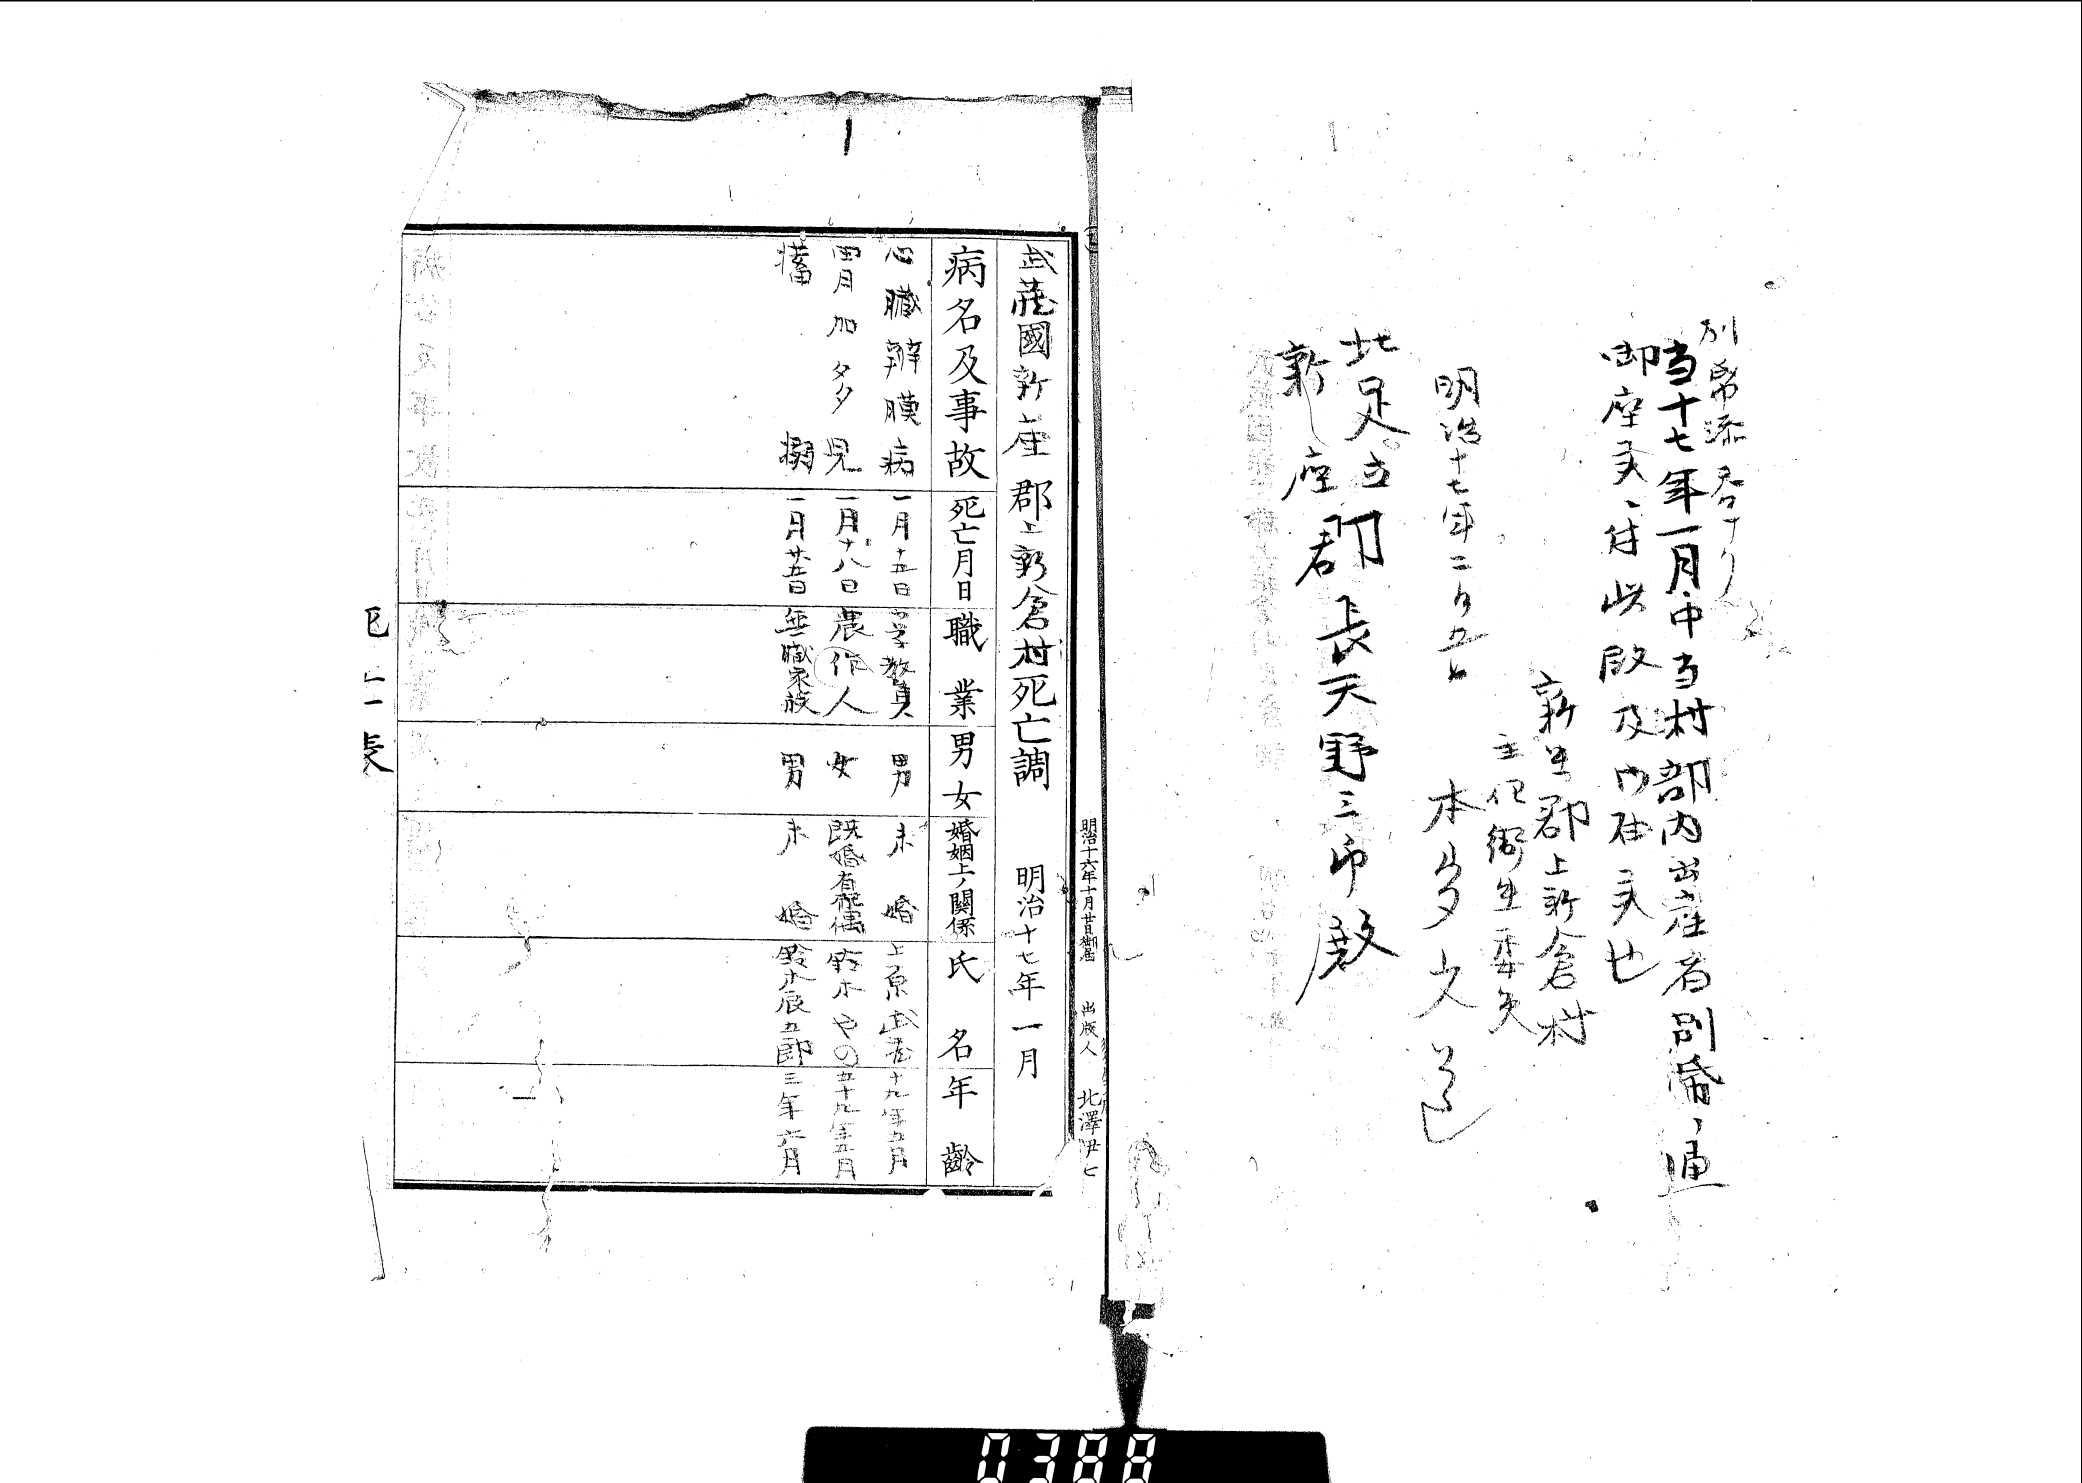 当十七年一月中当村部内出産者別紙之通
御座候ニ付此段及御届候也
新座郡上新倉村
主任衛生委員
明治十七年二月五日
本多
北足立郡
新座郡長天野三郎殿
明治十六年十月廿日御届 出版人 北澤伊七
武蔵國新座郡上新倉村死亡調 明治十七年一月
病名及事故 死亡月日 職業 男女 婚姻上ノ關係 氏名 年齡
心臓辨膜病 一月十五日 教員 男 未婚 上原武 十九年五月
胃加多見 一月十八日 農作人 女 既婚有配偶 鈴木やの 五十九年五月
搐搦 一月廿五日 無職家族 男 未婚 鈴木辰五郎 三年六月
表
0388